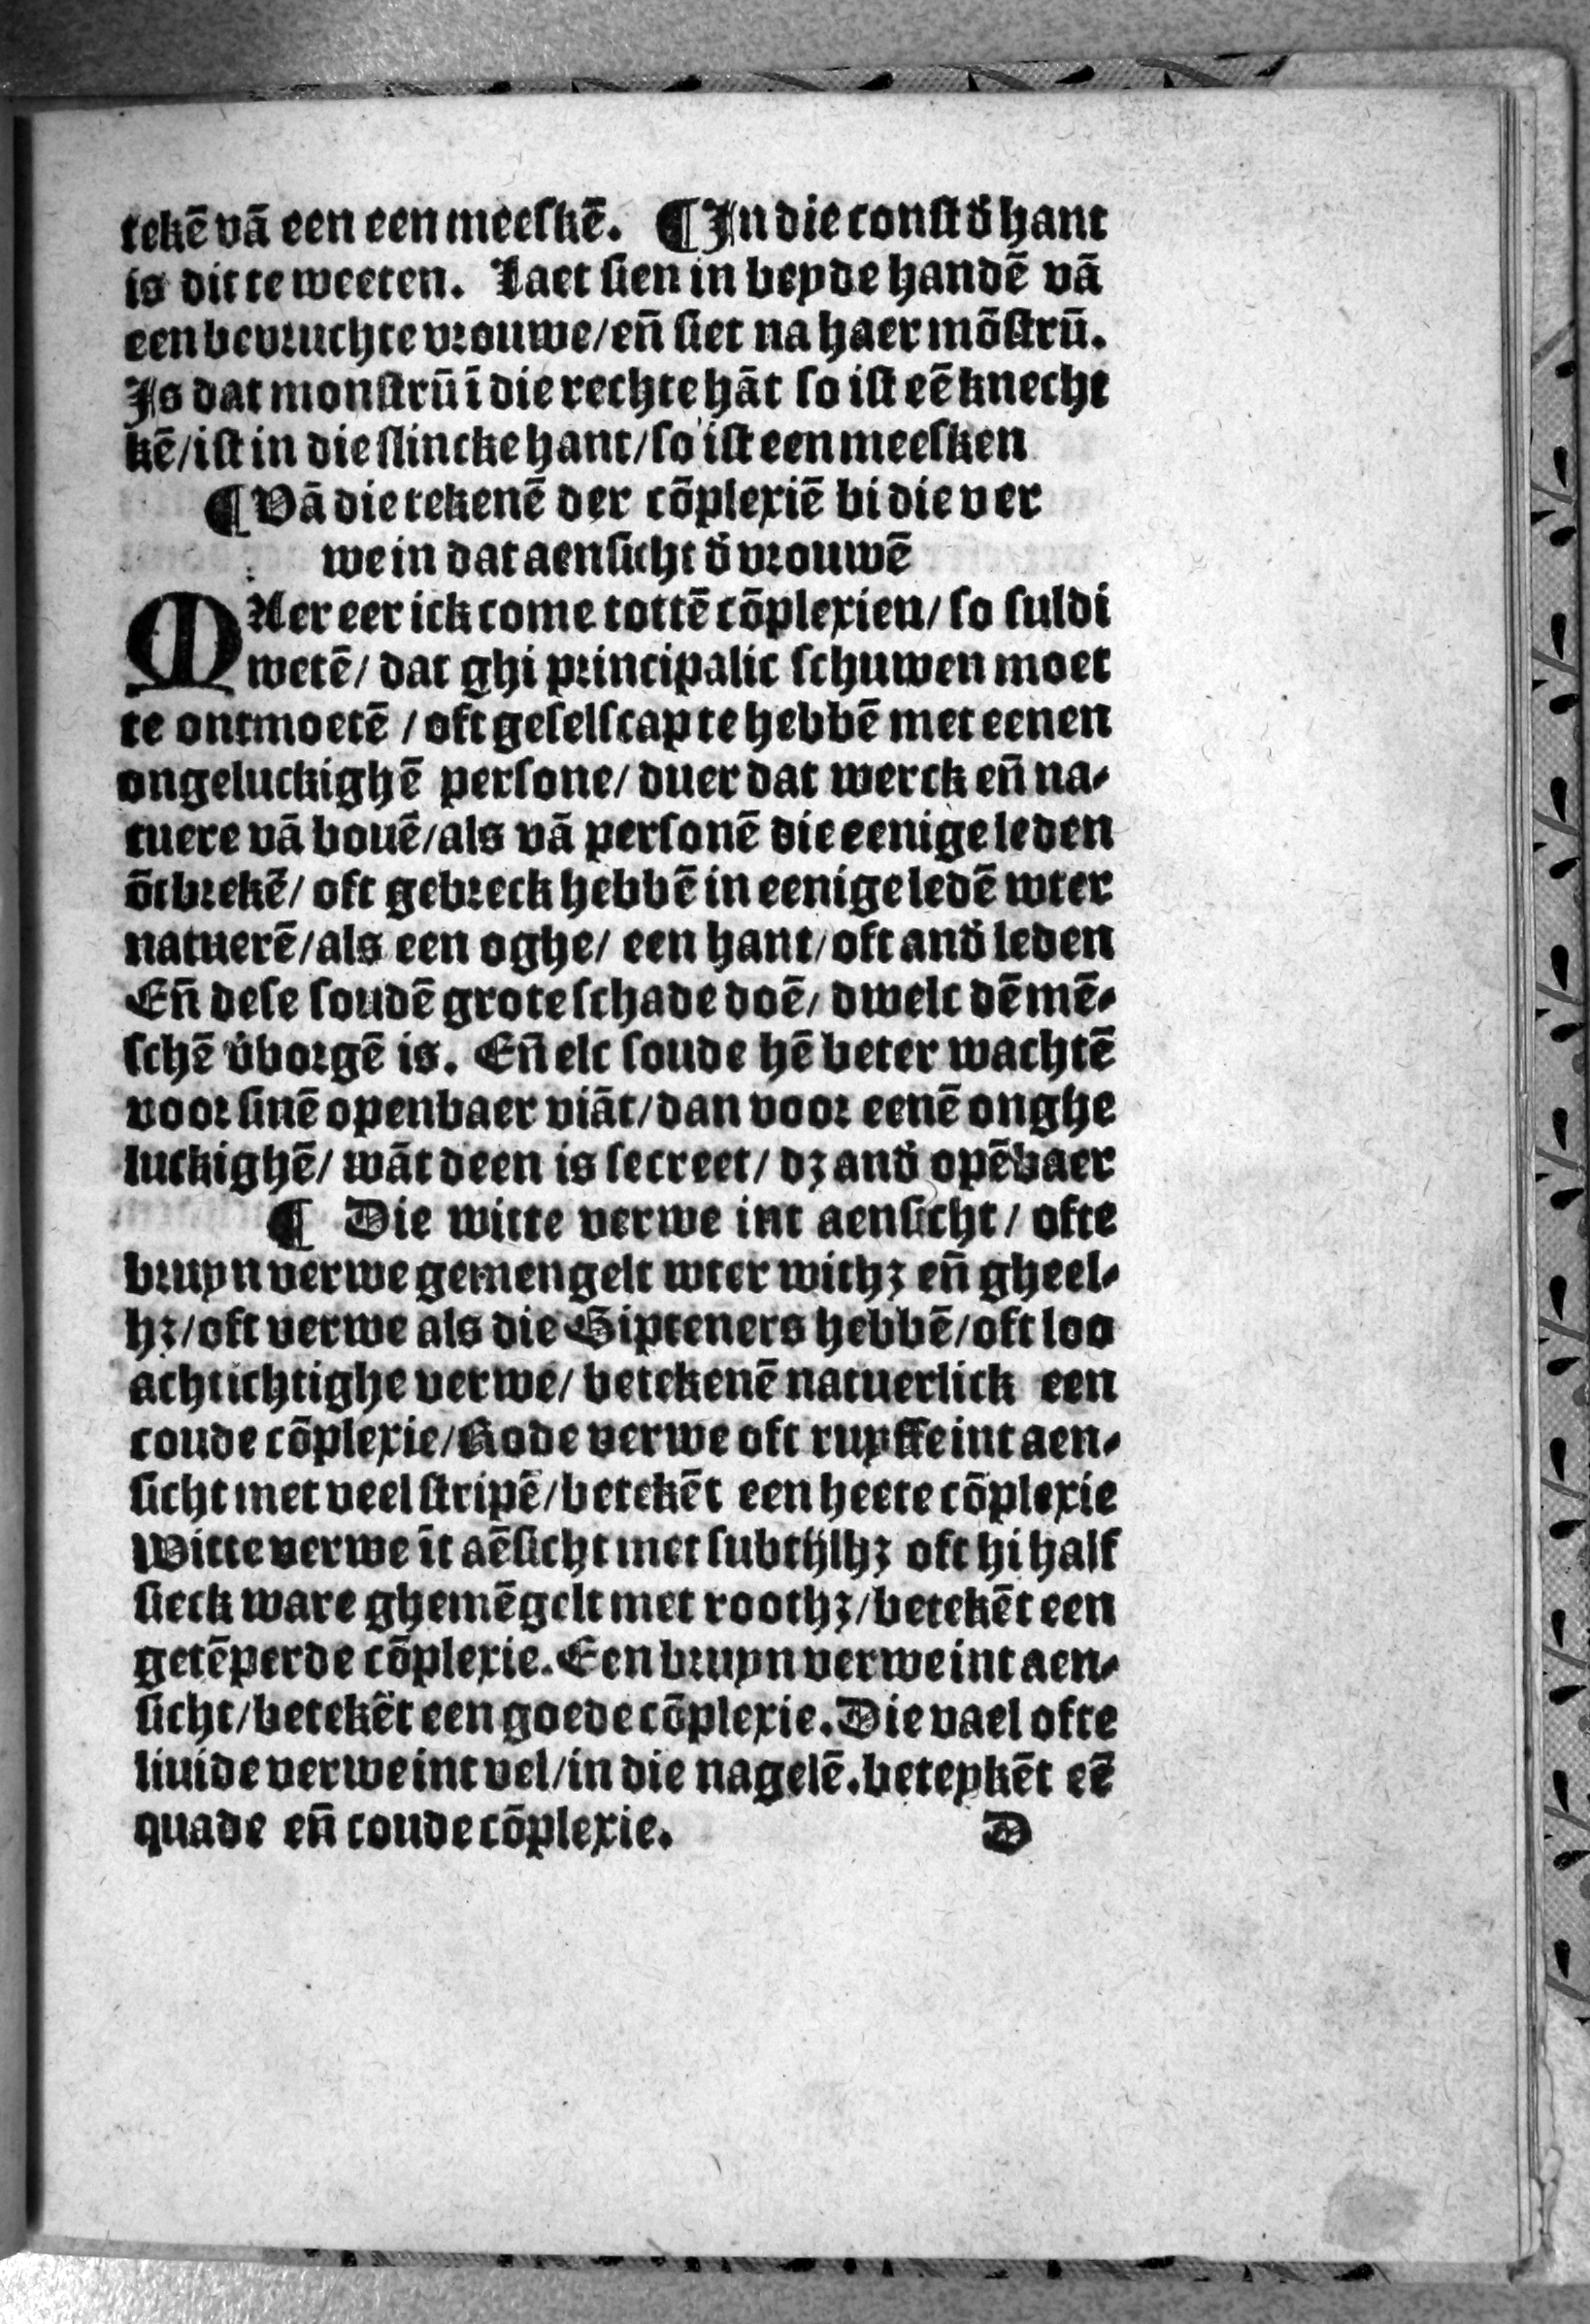 tekē vā een een meeskē. ¶ In die const d̄ hant
is dit te weeten. Laet sien in beyde handē vā
een bevruchte vrouwe/eñ siet na haer mōstrū.
Is dat monstrū ī die rechte hāt so ist eē knecht
kē/ist in die slincke hant/so ist een meesken
¶ Vā die tekenē der cōplexiē bi die ver
we in dat aensicht d̄ vrouwē
MAer eer ick come tottē cōplexien/ so suldi
wetē/ dat ghi principalic schuwen moet
te ontmoetē / oft geselscap te hebbē met eenen
ongeluckighē persone/ duer dat werck eñ na⸗
tuere vā bouē/als vā personē die eenige leden
ōtbrekē/ oft gebreck hebbē in eenige ledē wter
natuerē/als een oghe/ een hant/oft and̄ leden
Eñ dese soudē grote schade doē/ dwelc dē mē⸗
schē v̄borgē is. Eñ elc soude hē beter wachtē
voor sinē openbaer viāt/dan voor eenē onghe
luckighē/ wāt deen is secreet/ dz and̄ opēbaer
¶ Die witte verwe int aensicht/ ofte
bruyn verwe gemengelt wter withz eñ gheel⸗
hz/oft verwe als die Gipteners hebbē/oft loo
achtichtighe verwe/ betekenē natuerlick een
coude cōplexie/Rode verwe oft ruyffe int aen⸗
sicht met veel stripē/betekēt een heete cōplexie
Witte verwe īt aēsicht met subtijlhz oft hi half
sieck ware ghemēgelt met roothz/betekēt een
getēperde cōplexie. Een bruyn verwe int aen⸗
sicht/betekēt een goede cōplexie. Die vael ofte
liuide verwe int vel/in die nagelē. beteykēt eē
quade eñ coude cōplexie. D